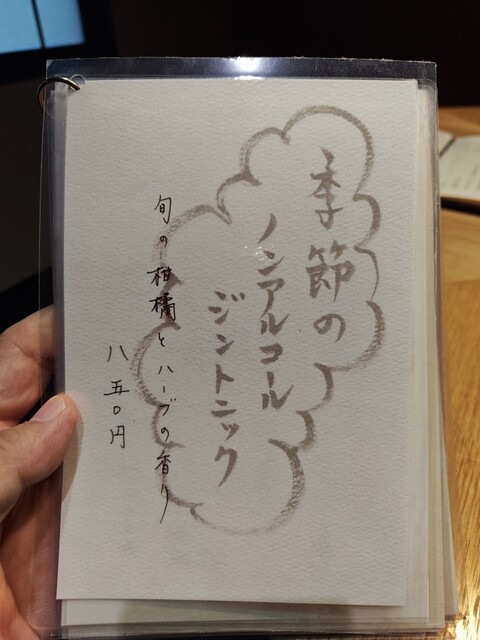 季節の
ノンアルコール
ジントニック
旬の柑橘とハーブの香り
八五〇円